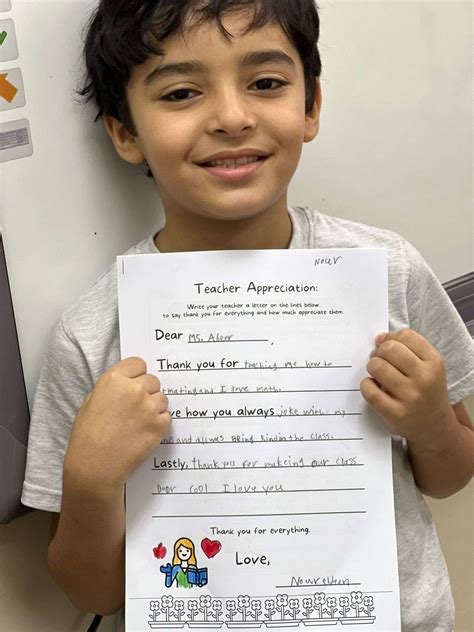 Nour
Teacher Appreciation:
Write your teacher a letter on the lines below
to say thank you for everything and how much appreciate them.
Dear Ms. Abeer,
Thank you for teaching me how to
mating and I love math.
ve how you always joke with my
and allwes bring kind in the class.
Lastly, thank you for makeing our class
Door cool I love you
Thank you for everything.
Love,
Nour eldeen